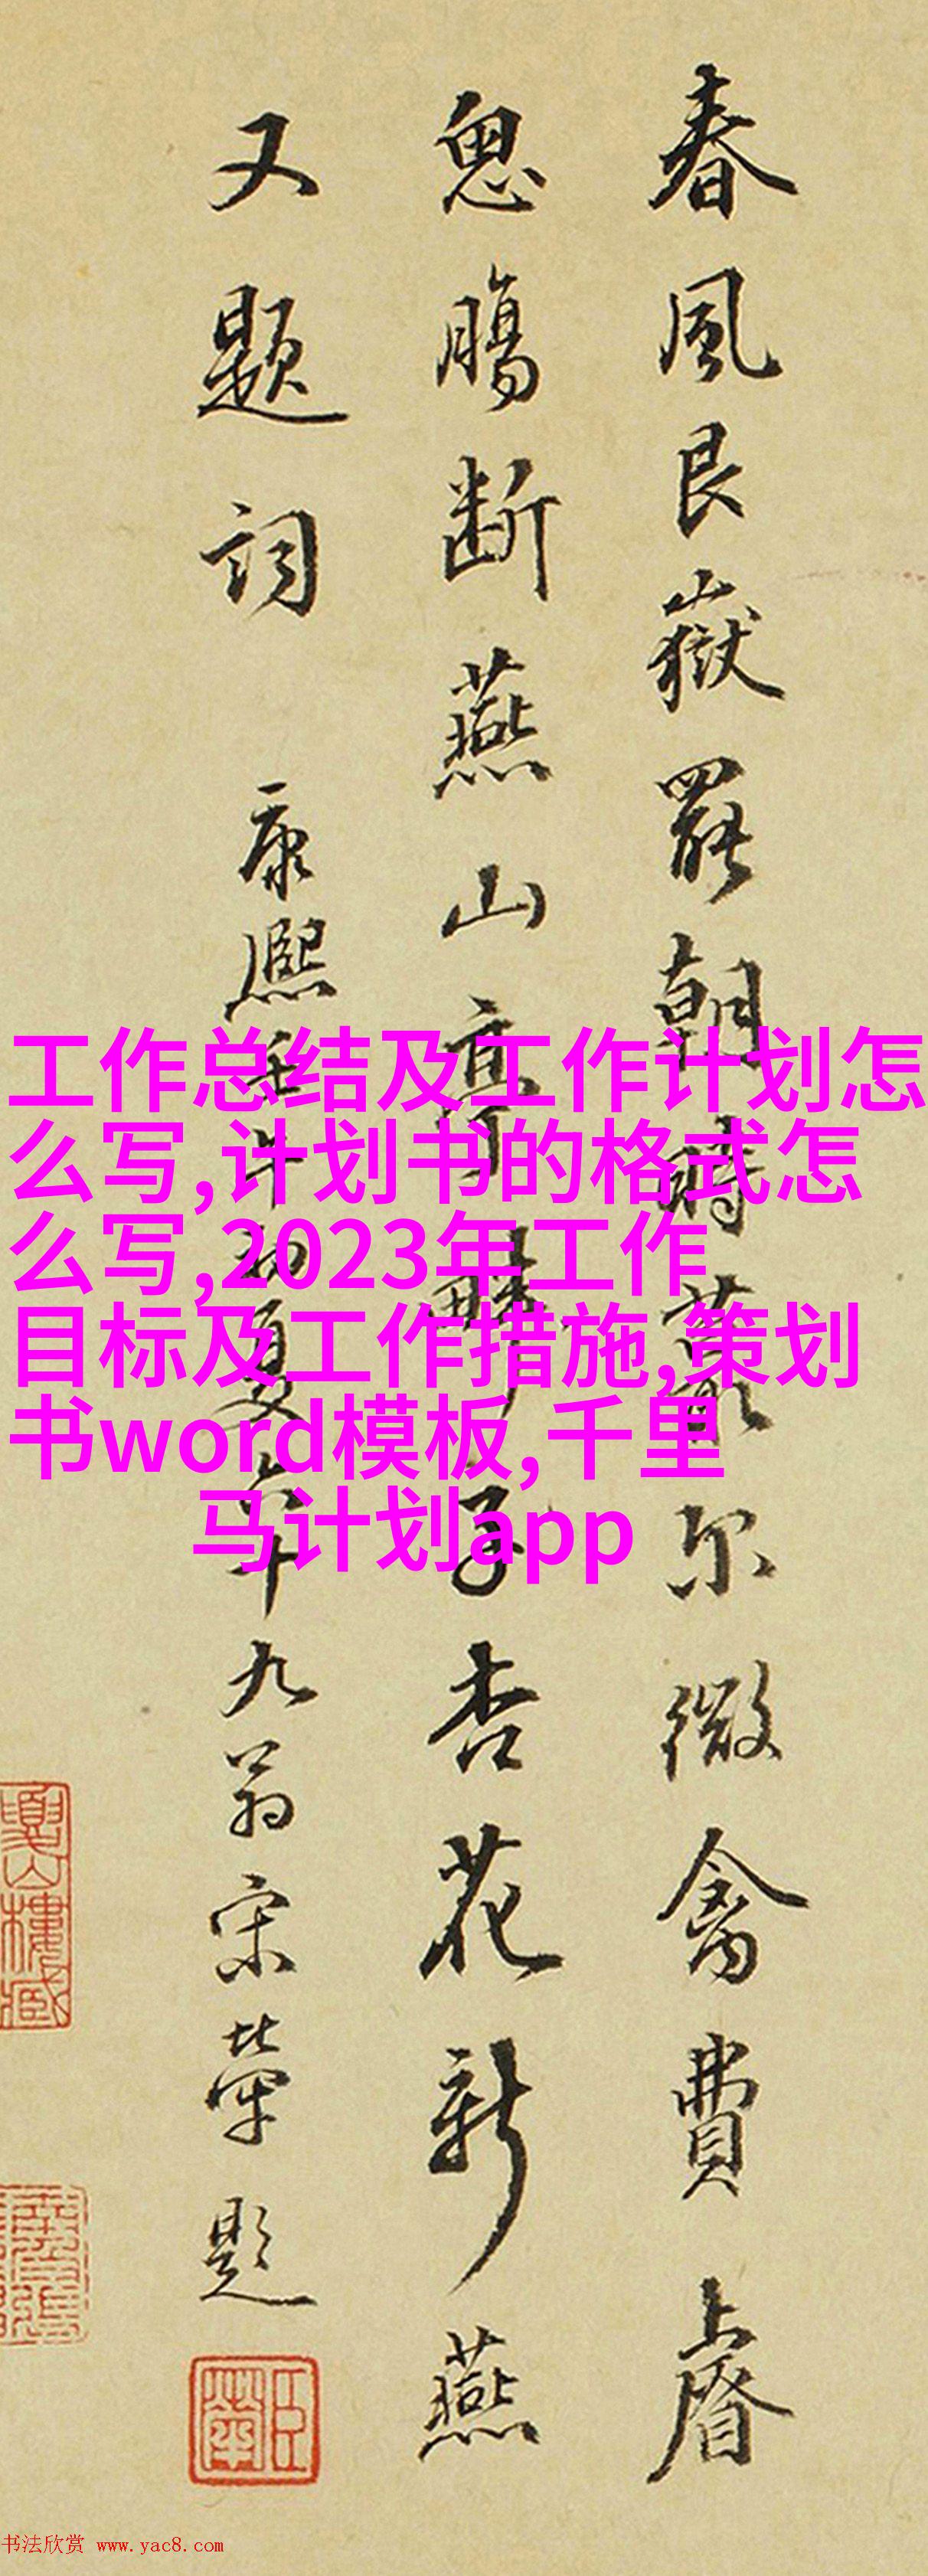 春風艮嶽罷朝時藐尔微禽費睿
思腸斷燕山亭畔子杏花新燕
又題詞 康熙壬午初夏六十九翁宋犖題
臣犖
工作总结及工作计划怎
么写,计划书的格式怎
么写,2023年工作
目标及工作措施,策划
书word模板,千里
马计划app
书法欣赏 www.yac8.com